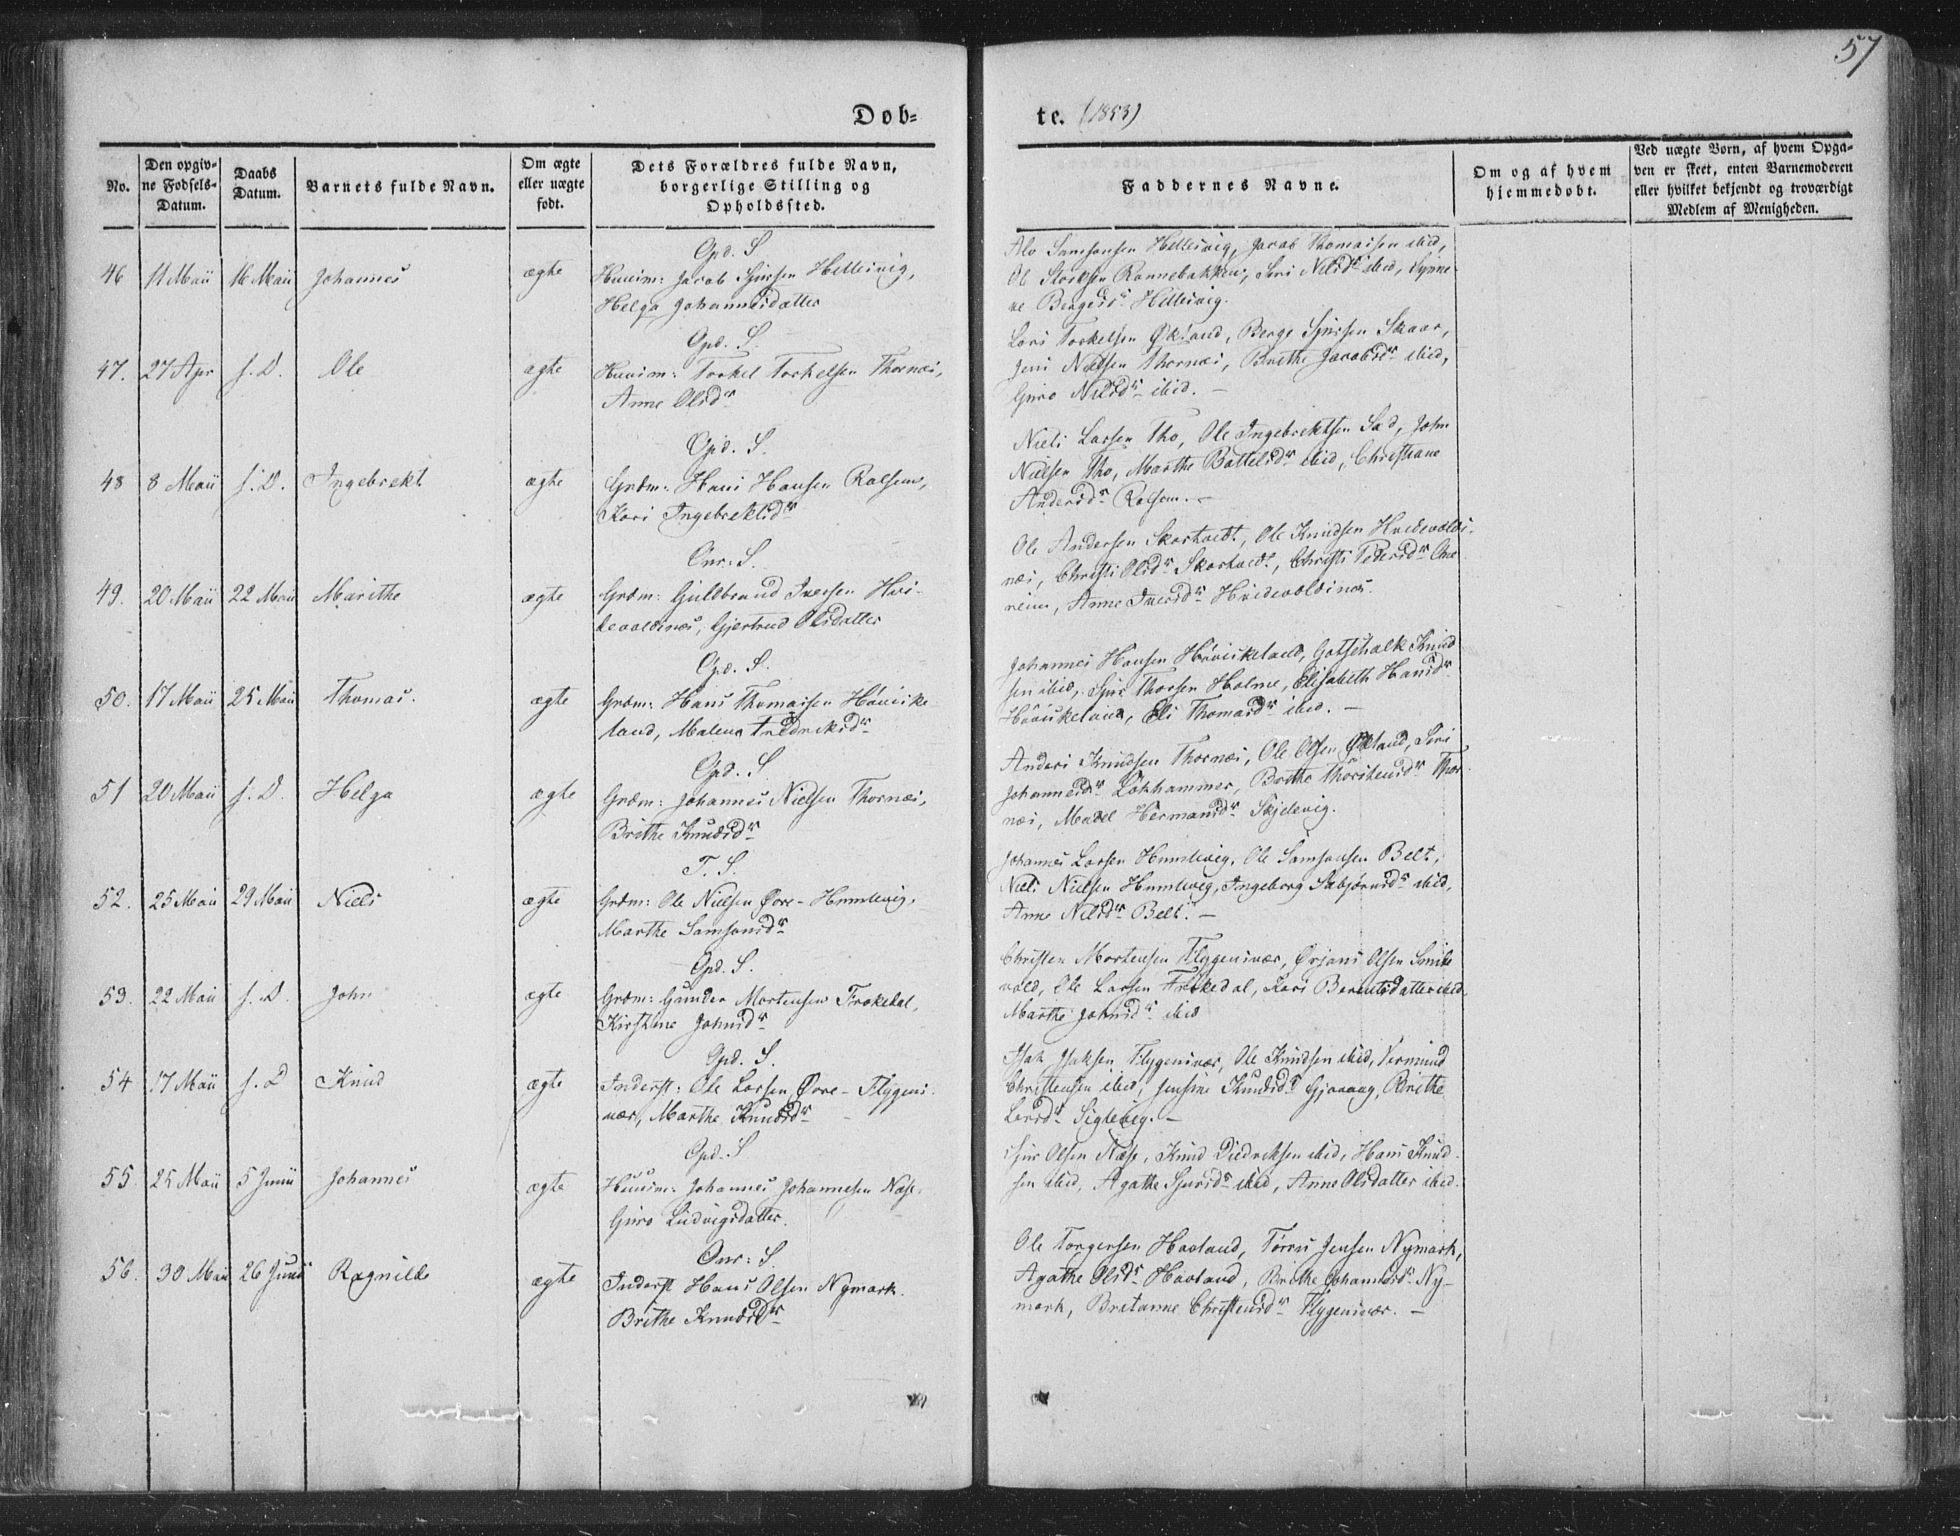 57
Døb=
te. (1853)
No.
Den opgiv=
ne Fødsels=
Datum.
Daabs
Datum.
Barnets fulde Navn.
Om ægte
eller uægte
født.
Dets Forældres fulde Navn,
borgerlige Stilling og
Opholdssted.
Faddernes Navne.
Om og af hvem
hjemmedøbt.
Ved uægte Børn, af hvem Opga=
ven er skeet, enten Barnemoderen
eller hvilket bekjendt og troværdigt
Medlem af Menigheden.
Opd. S.
46 11 Maii 16 Maii Johannes ægte Huusm: Jacob Sjursen Hellisvig,
Helga Johannesdatter
Alv Samsonsen Hellisvig, Jacob Thomassen ibid,
Ol Storksen Rønnebakken, Siri Nilsdr ibid, Synne
ve Bergesdr Hellisvig.
Opd. S.
47. 27 Apr s. D. Ole ægte Huusm: Torkel Torkelsen Thornæs,
Anne Olsdr
Lars Torkelsen Økland, Berge Sjursen Skaar,
Jens Nielsen Thornæs, Brithe Jacobsdr ibid,
Guro Nilsdr ibid. —
Opd. S.
48 8 Maii s. D. Ingebrekt ægte Grdm: Hans Hansen Rolsem,
Kari Ingebrektsdr
Niels Larsen Tho, Ole Ingebrektsen Sæd, John
Nielsen Tho, Marthe Bottelsdr ibid, Christiane
Andersdr Rolsem. —
Onr: S.
49. 20 Maii 22 Maii Marithe ægte Grdm: Guldbrand Iversen Hvi-
devoldnæs, Gjertrud Olsdatter
Ole Andersen Skortvedt, Ole Knudsen Hvidevolds-
næs, Christi Olsdr Skortvedt, Christi Pedersdr One
reim, Anne Iversdr Hvidevoldsnæs.
Opd. S.
50. 17 Maii 25 Maii Thomas. ægte Grdm: Hans Thomassen Høviske-
land, Malena Fredriksdr
Johannes Hansen Høviskeland, Gotschalk Knud
sen ibid, Sjur Thorsen Holme, Elisabeth Hansdr
Høviskeland, Eli Thomasdr ibid. —
Opd. S.
51 20 Maii s. D. Helga ægte Grdm: Johannes Nielsen Thornæs,
Brithe Knudsdr
Anders Knudsen Thornæs, Ole Olsen Økland, Siri
Johannesdr Lokhammer, Brithe Thorstensdr Thor-
næs, Madel Hermansdr Skjelevig.
T. S.
52. 25 Maii 29 Maii Niels ægte Grdm: Ole Nielsen Øvre-Humlevig,
Marthe Samsonsdr
Johannes Larsen Humlevig, Ole Samsonsen Belt,
Niels Nielsen Humlevig, Ingeborg Asbjørnsdr ibid,
Anne Nilsdr Belt. —
Opd. S.
53. 22 Maii s. D. John ægte Grdm: Gunder Mortensen Frøkedal,
Kirstine Johnsdr
Christen Mortensen Flygensvær, Ørjans Olsen Smide
vold, Ole Larsen Frøkedal, Kari Berentsdatter ibid,
Marthe Johnsdr ibid
Opd. S.
54 17 Maii s. D Knud ægte Inderst: Ole Larsen Øvre-Flygens-
vær, Marthe Knudsdr
Isak Isaksen Flygensvær, Ole Knudsen ibid, Vermund
Christensen ibid, Jensine Knudsdr Gjøvaag, Brithe
Larsdr Siglevig. —
Opd. S
55. 25 Maii 5 Junii Johannes ægte Huusm: Johannes Johannesen Næse,
Guro Ludvigsdatter.
Sjur Olsen Næse, Knud Diedriksen ibid, Hans Knud-
sen ibid, Agathe Sjursdr ibid, Anne Olsdatter ibid.
Onr: S.
56. 30 Maii 26 Junii Ragnilde ægte Inderst Hans Olsen Nymark.
Brithe Knudsdr
Ole Torgersen Havland, Tørris Jensen Nymark,
Agathe Olsdr Havland, Brithe Johannesdr Ny-
mark, Britanne Christensdr Flygensvær. —